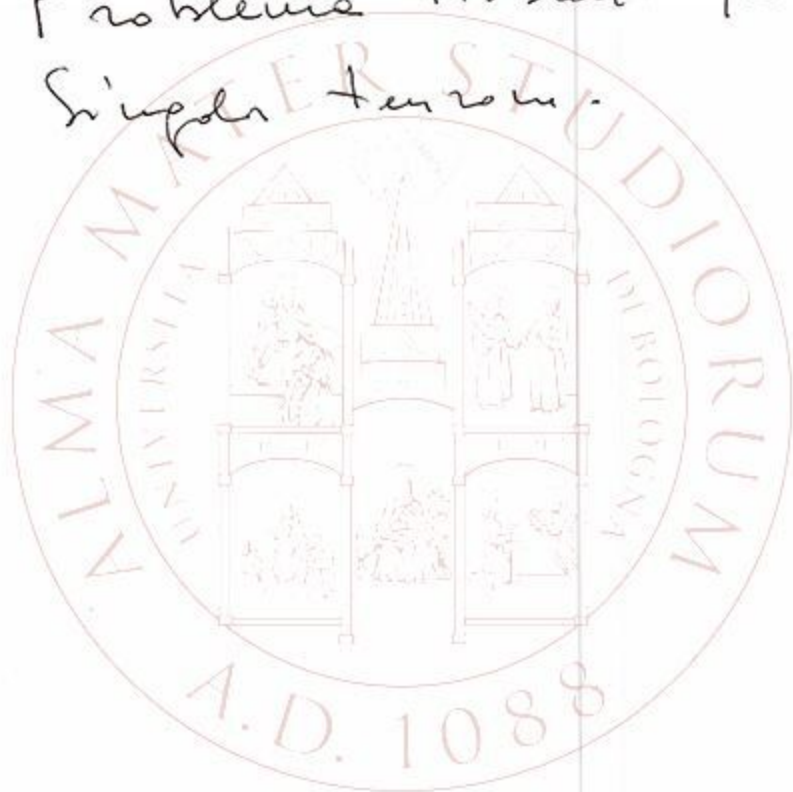 Problema
Singola tensione.
ALMA MATER STUDIORUM
UNIVERSITA DI BOLOGNA
A.D. 1088